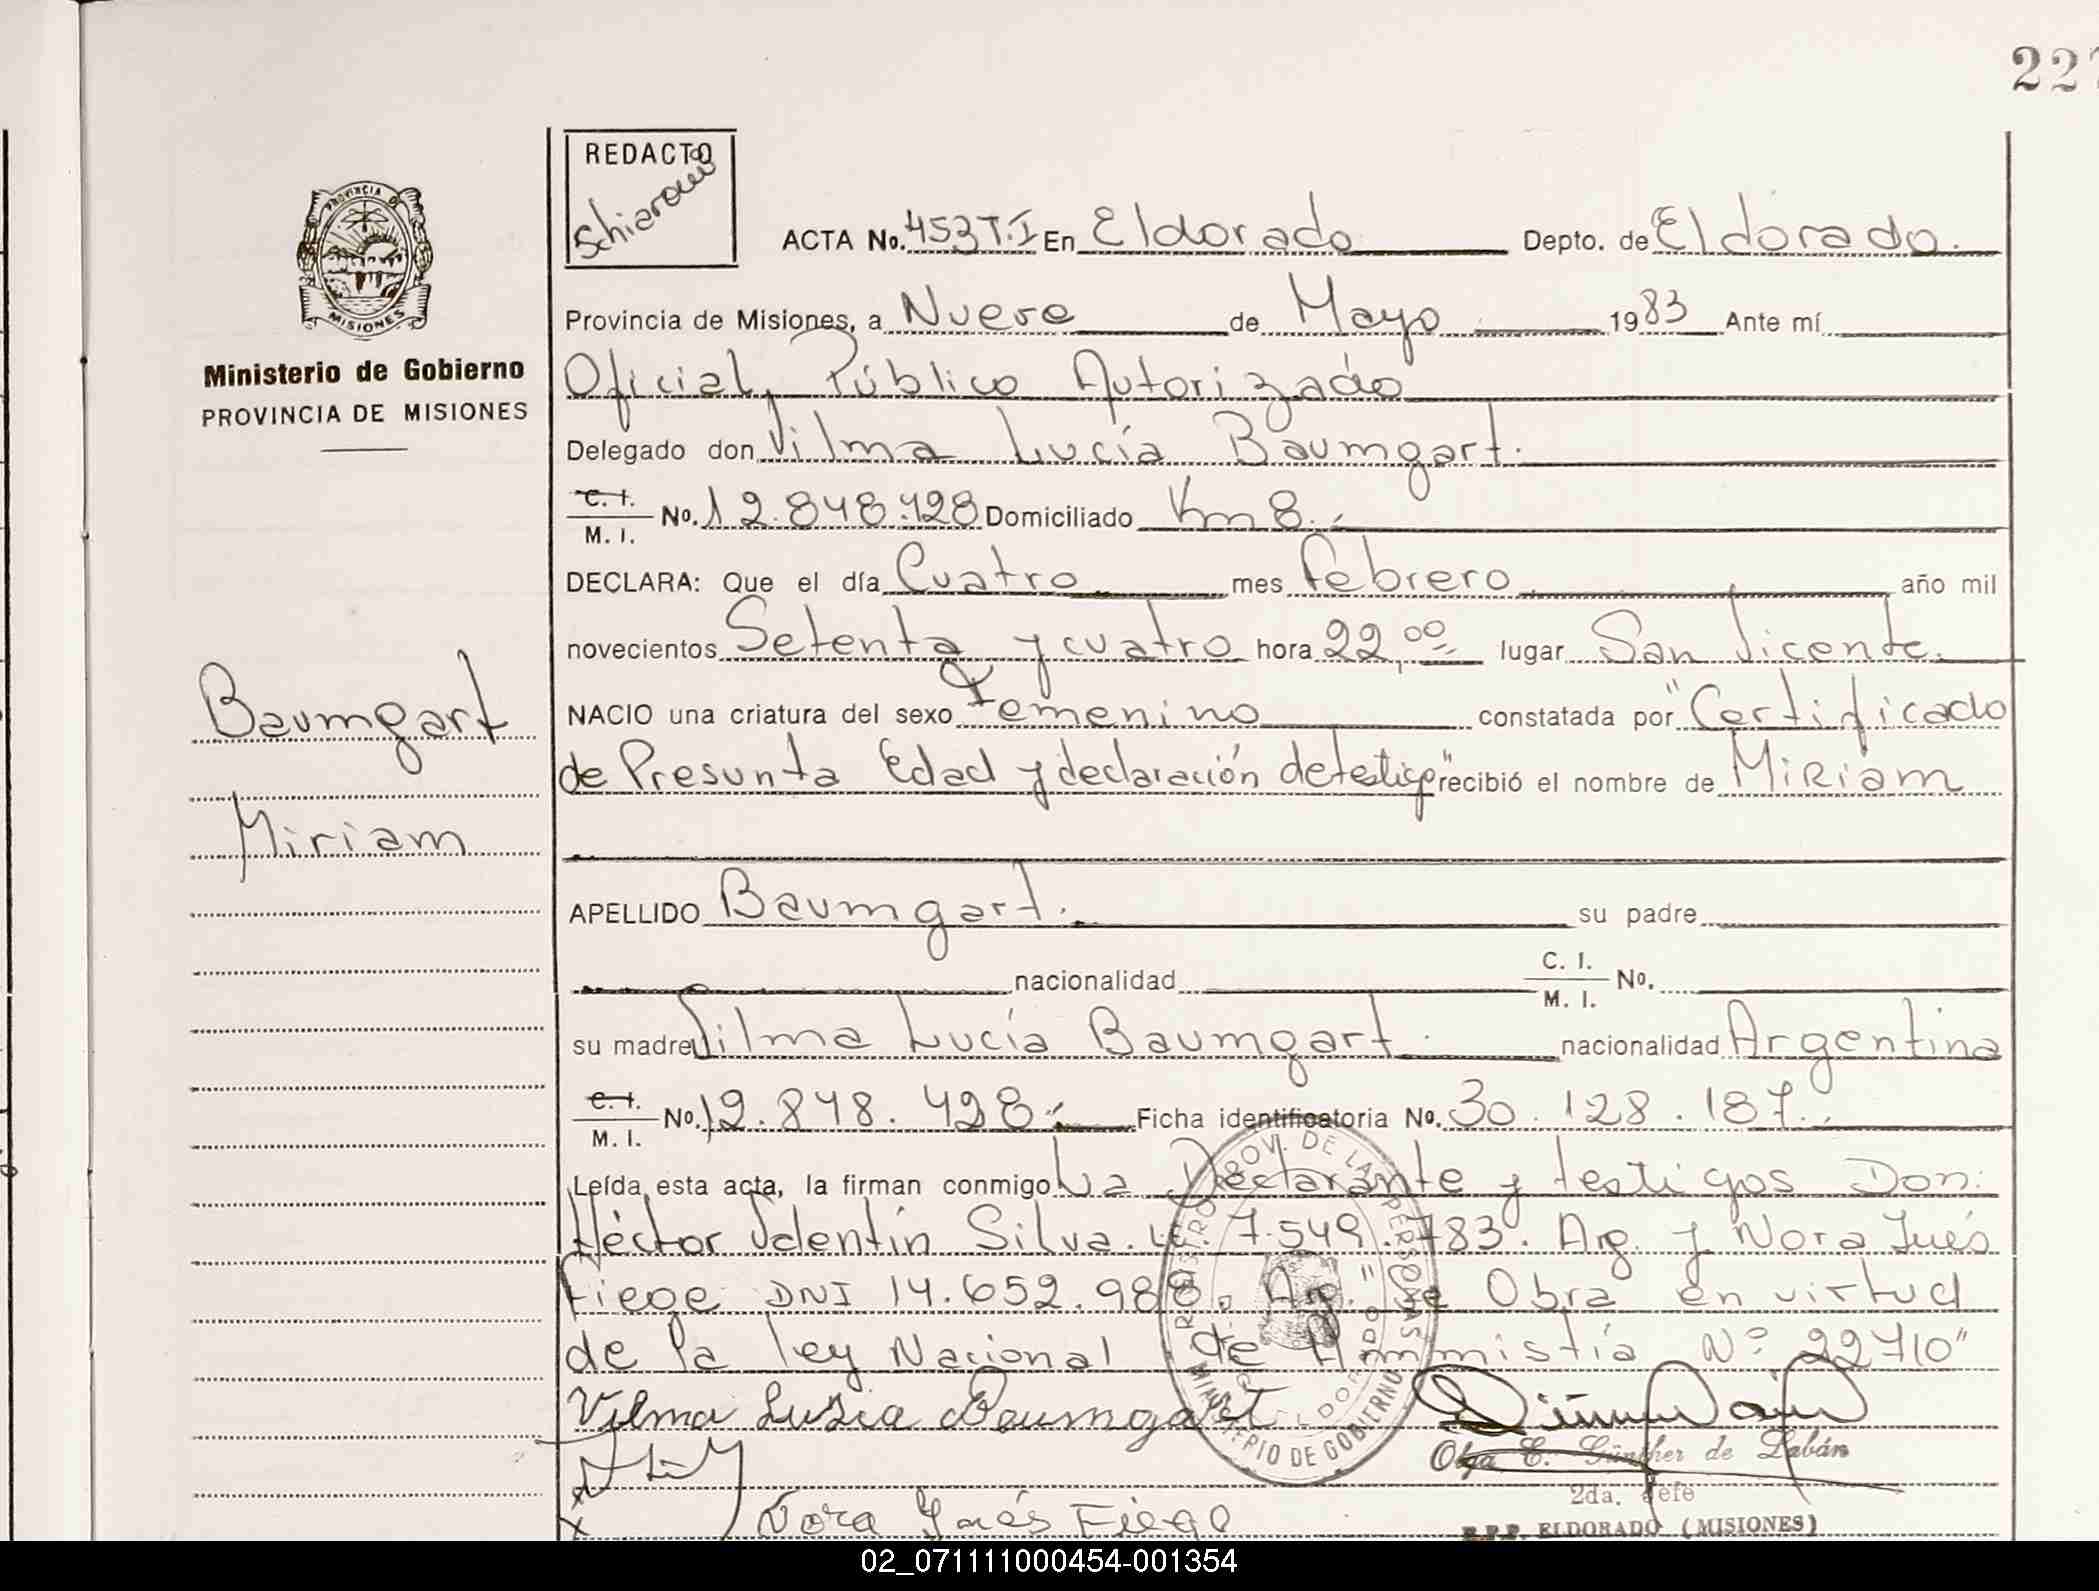 227
REDACTO
Schiaroui
PROVINCIA DE
MISIONES
Ministerio de Gobierno
PROVINCIA DE MISIONES
ACTA No. 453 T.I En Eldorado Depto. de Eldorado.
Provincia de Misiones, a Nueve de Mayo 1983 Ante mí
Oficial, Público Autorizado
Delegado don Vilma Lucía Baumgart.
C. I.
M. I. No. 12.848.428 Domiciliado Km 8.
DECLARA: Que el día Cuatro mes Febrero año mil
novecientos Setenta y cuatro hora 22,00 lugar San Vicente.
NACIO una criatura del sexo Femenino constatada por "Certificado
de Presunta Edad y declaración de testigo" recibió el nombre de Miriam
Baumgart
Miriam
APELLIDO Baumgart. su padre
nacionalidad C. I.
M. I. No.
su madre Vilma Lucía Baumgart. nacionalidad Argentina
C. I.
M. I. No. 12.848.428 Ficha identificatoria No. 30.128.187.
Leída esta acta, la firman conmigo La Declarante y testigos Don:
Héctor Valentín Silva. LE. 7.549.783. Arg. y Nora Inés
Fiege DNI 14.652.988. Arg. "Se Obra en virtud
de la ley Nacional de Ammistía Nº 22710"
Vilma Lusia Baumgart
Olga E. Günther de Labán
2da. Jefe
Nora Inés Fiege
R.P.P. ELDORADO (MISIONES)
REGISTRO PROV. DE LAS PERSONAS
MINISTERIO DE GOBIERNO
ELDORADO
02_071111000454-001354